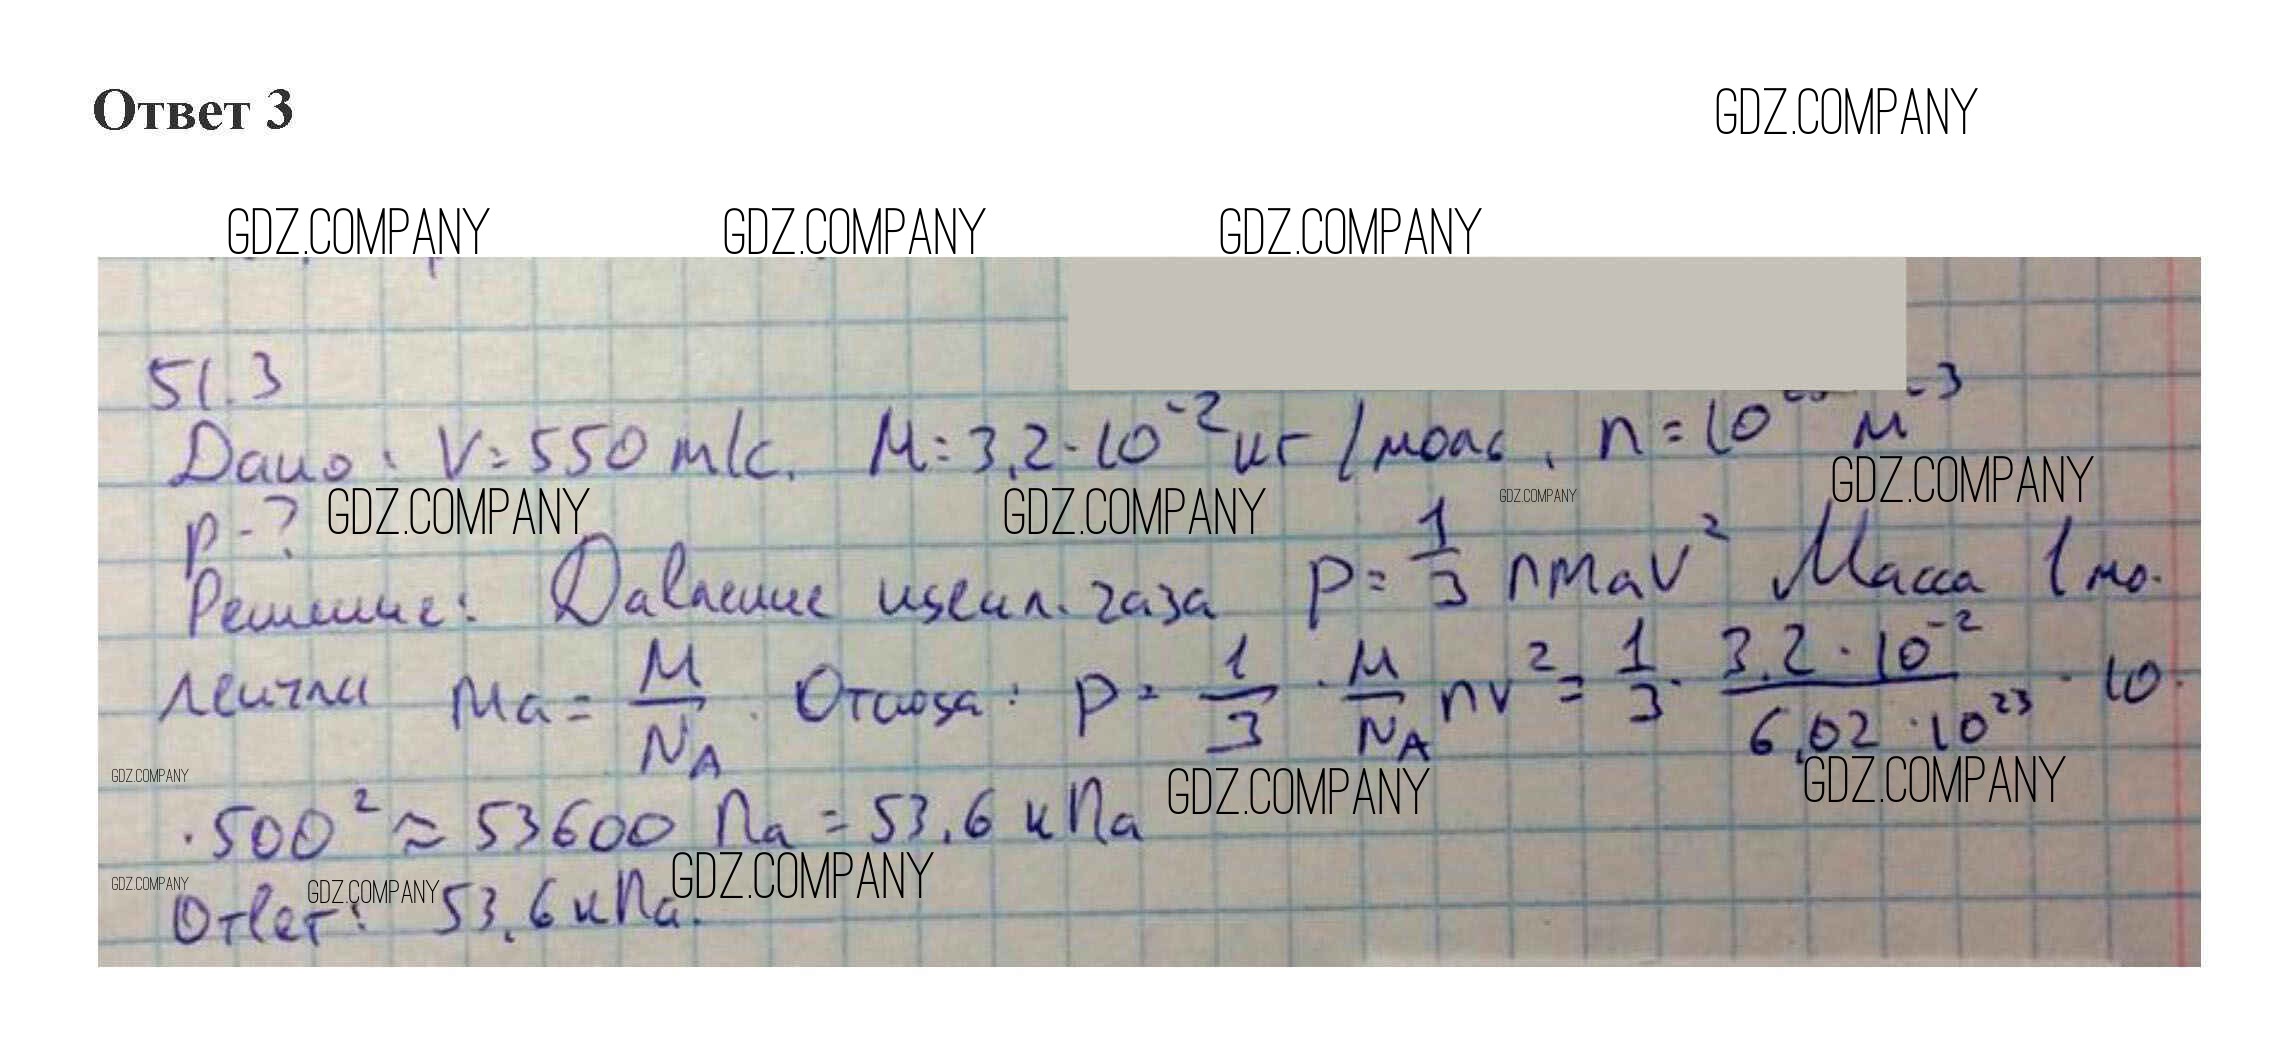 Ответ 3
GDZ.COMPANY
GDZ.COMPANY GDZ.COMPANY GDZ.COMPANY
51.3
Дано: V=550 м/с. M=3,2·10⁻² кг/моль, n=10 м⁻³
GDZ.COMPANY GDZ.COMPANY GDZ.COMPANY GDZ.COMPANY
p-?
Решение: Давление идеал. газа p=1/3 nmav² Масса 1 мо.
лекулы ma=M/NA. Отсюда: p=1/3·M/NA nv²=1/3·3,2·10⁻²/6,02·10²³·10.
GDZ.COMPANY GDZ.COMPANY GDZ.COMPANY
·500²≈53600 Па=53,6 кПа
GDZ.COMPANY GDZ.COMPANY GDZ.COMPANY
Ответ: 53,6 кПа.